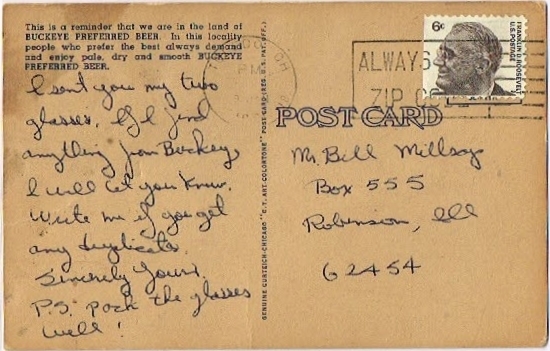 This is a reminder that we are in the land of
BUCKEYE PREFERRED BEER. In this locality
people who prefer the best always demand
and enjoy pale, dry and smooth BUCKEYE
PREFERRED BEER.
I sent you my two
glasses. If I find
anything from Buckeye,
I will let you know.
Write me if you get
any duplicates.
Sincerely Yours,
P.S. pack the glasses
well!
GENUINE CURTEICH-CHICAGO "C.T. ART-COLORTONE" POST CARD (REG. U.S. PAT. OFF.)
PM
ALWAYS
ZIP CO
6¢
FRANKLIN D. ROOSEVELT
U.S. POSTAGE
POST CARD
Mr. Bill Millsap
Box 555
Robinson, Ill
62454